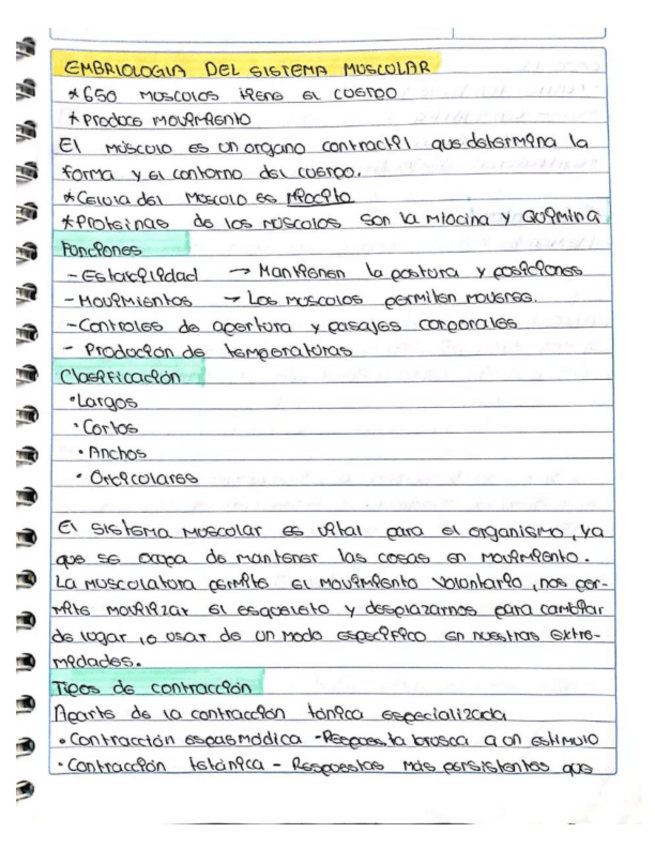 EMBRIOLOGIA DEL SISTEMA MUSCULAR
*650 MUSCULOS TIENE EL CUERPO
*PRODUCE MOVIMIENTO
El músculo es un organo contractil que determina la
forma y el contorno del cuerpo.
*Celula del musculo es Miocito
*Proteinas de los músculos son la Miocina y Quimina
Funciones
- Estabilidad → Mantienen la postura y posiciones
- Movimientos → Los musculos permiten moverse.
- Controles de apertura y pasajes corporales
- Produción de temperaturas
Clasificación
• Largos
• Cortos
• Anchos
• Orbiculares
El sistema muscular es vital para el organismo, ya
que se ocupa de mantener las cosas en movimiento.
La musculatura permite el movimiento voluntario, nos per-
mite movilizar el esqueleto y desplazarnos para cambiar
de lugar, o usar de un modo especifico en nuestras extre-
midades.
Tipos de contracción
Aparte de la contracción tónica especializada
• Contracción espasmódica - Respuesta brusca a un estimulo
• Contracción tetánica - Respuestas más persistentes que